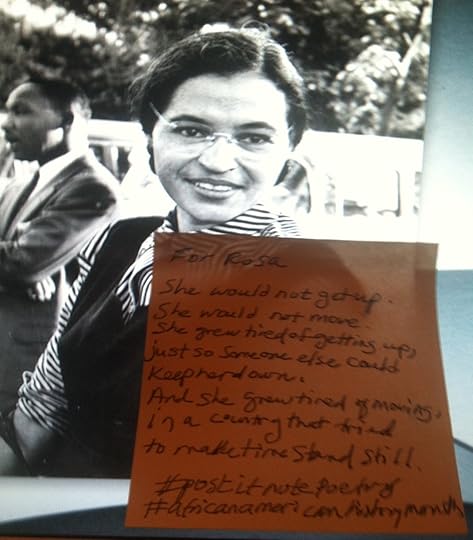 For Rosa
She would not get up.
She would not move.
She grew tired of getting up,
just so someone else could
keep her down.
And she grew tired of moving,
in a country that tried
to make time stand still.
#post it note Poetry
#africanamerican history month